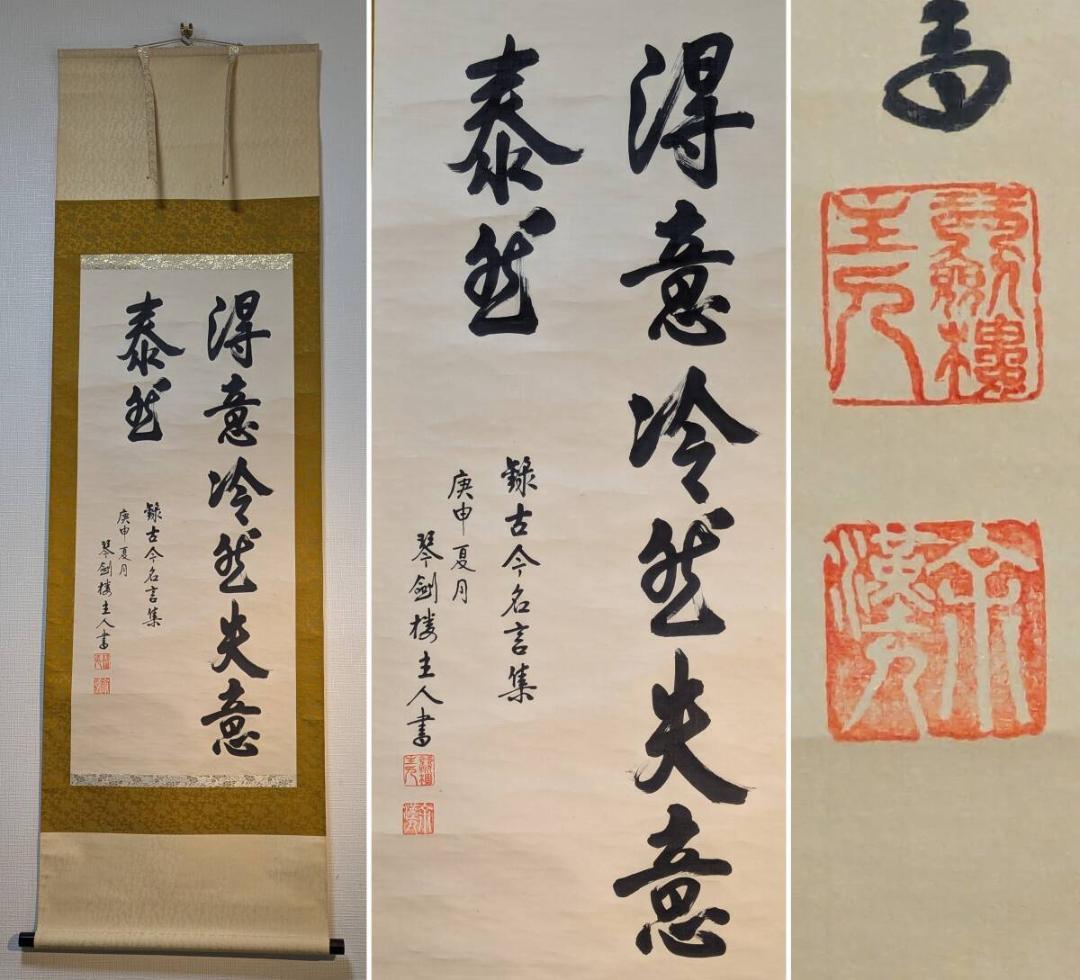 得意冷然失意
泰然
錄古今名言集
庚申夏月
琴劍楼主人書
得意冷然失意
泰然
錄古今名言集
庚申夏月
琴劍楼主人書
書
琴劍樓
主人